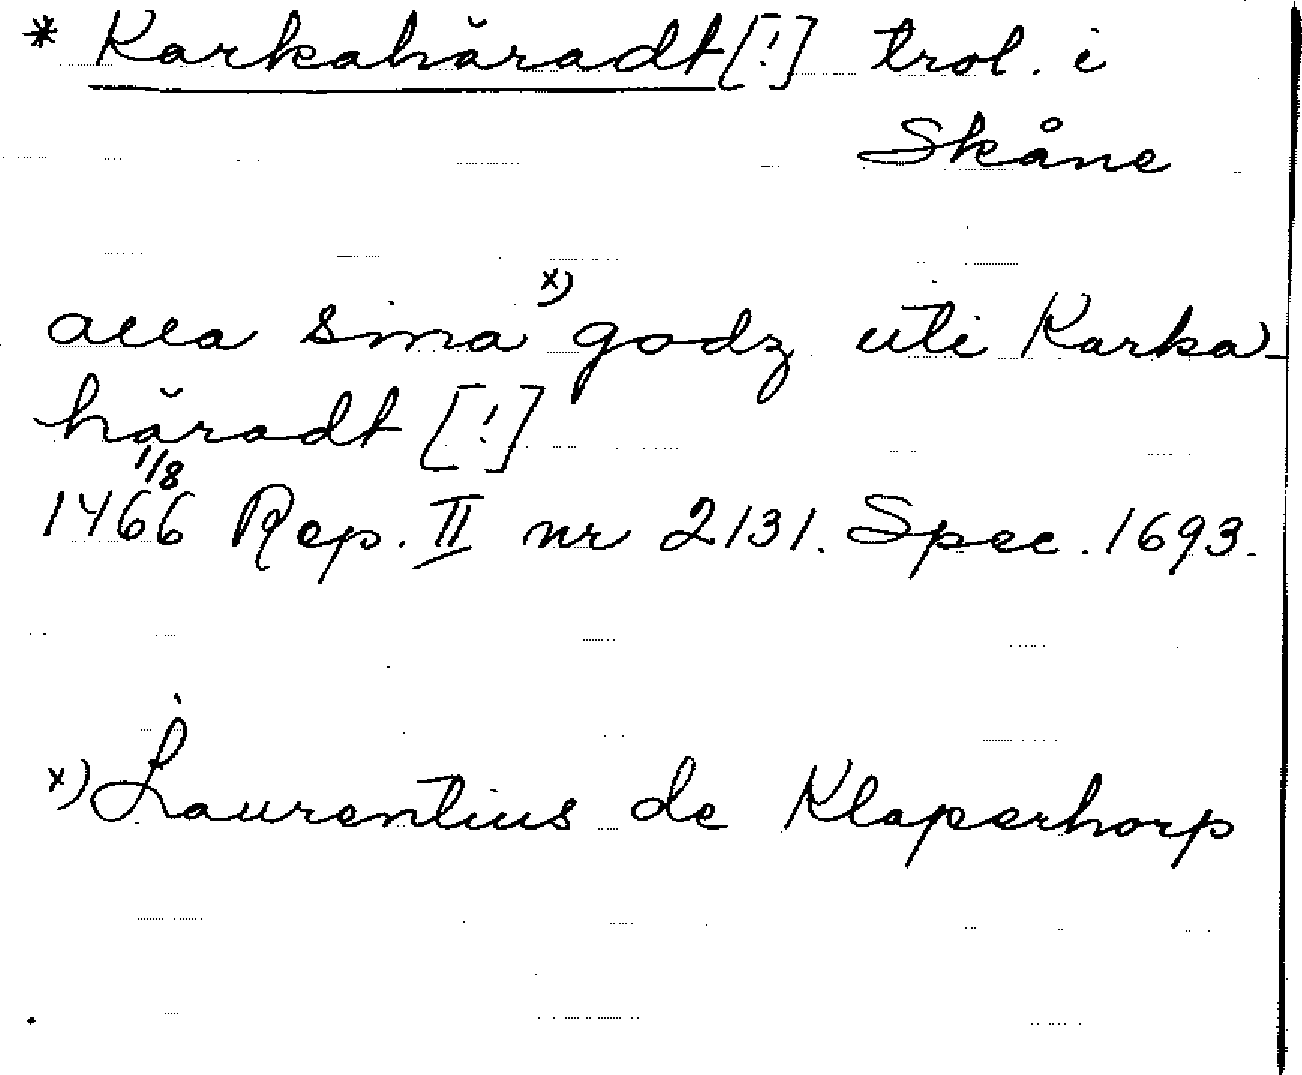 * Karkahäradt [!] trol. i
Skåne
alla sina x) godz uti Karka-
häradt [!]
1466 1/8 Rep. II nr 2131. Spec. 1693.
x) Laurentius de Klaperhorp